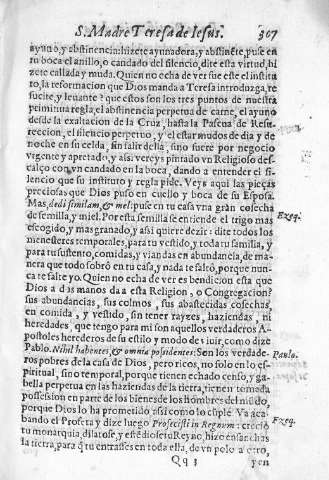 S. Madre Teresa de Iesus. 307
ayuno, y abstinencia: hizete ayunadora, y abstinẽte, puse en
tu boca el anillo, o candado del silencio, dite esta virtud, hi
zete callada y muda. Quien no echa de ver sue este el institu
to, la reformacion que Dios manda a Teresa introduzga, re
sucite, y leuante? que estos son los tres puntos de nuestra
primitiua regla, el abstinencia perpetua de carne, el ayuno
desde la exaltacion de la Cruz, hasta la Pascua de Resu-
rreccion, el silencio perpetuo, y el estar mudos de dia y de
noche en su celda, sin salir della, sino fuere por negocio
vrgente y apretado, y assi vereys pintado vn Religioso des-
calço con vn candado en la boca, dando a entender el si-
lencio que su instituto y regla pide. Veys aqui las pieças
preciosas que Dios puso en cuello y boca de su Esposa.
Mas, dedi similam, & mel: puse en tu casa vna gran cosecha
de semilla, y miel. Por esta semilla se entiende el trigo mas Ezeq.
escogido, y mas granado, y assi quiere dezir: dite todos los
menesteres temporales, para tu vestido, y toda tu familia, y
para tu sustento, comidas, y viandas en abundancia, de ma-
nera que todo sobrò en tu casa, y nada te faltò, porque nun-
ca te falte yo. Quien no echa de ver es bendicion esta que
Dios a dos manos da a esta Religion, o Congregacion?
sus abundancias, sus colmos, sus abastecidas cosechas,
en comida, y vestido, sin tener rayzes, haziendas, ni
heredades, que tengo para mi son aquellos verdaderos A-
postoles herederos de su estilo y modo de viuir, como dize
Pablo. Nihil habentes, & omnia possidentes: Son los verdade- Paulo.
ros pobres de la casa de Dios, pero ricos, no solo en lo es-
piritual, sino temporal, porque tienen echado censo, y ga-
bella perpetua en las haziendas de la tierra, tienen tomada
possession en parte de los bienes de los hombres del mũdo,
porque Dios lo ha prometido assi como lo cuple. Va aca-
bando el Profeta y dize luego Profecisti in Regnum: creciò Ezeq.
tu monarquia, dilatose, y estẽdiose tu Reyno, hize ensanchas
la tierra, para q̃ tu entrasses en toda ella, de vn polo a otro,
Qq 3 yen